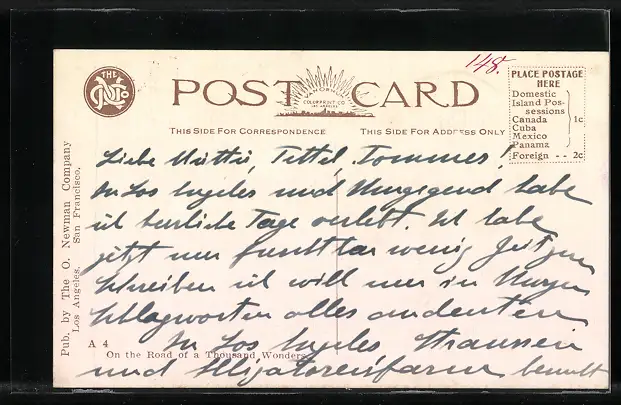 148.
THE
POST CARD
VAN ORNUM
COLORPRINT CO
LOS ANGELES
PLACE POSTAGE
HERE
Domestic
Island Pos-
sessions
Canada 1c
Cuba
Mexico
Panama
Foreign - - 2c
THIS SIDE FOR CORRESPONDENCE THIS SIDE FOR ADDRESS ONLY
Pub. by The O. Newman Company
Los Angeles. San Francisco.
Liebe Mutti, Tettel, Tommes!
In Los Angeles und Umgegend habe
ich herrliche Tage verlebt. Ich habe
jetzt nur furchtbar wenig Zeit zum
Schreiben ich will nur in kurzen
Schlagworten alles andeuten
In Los Angeles Straussen
und Alligatorenfarm bemalt
A 4
On the Road of a Thousand Wonders